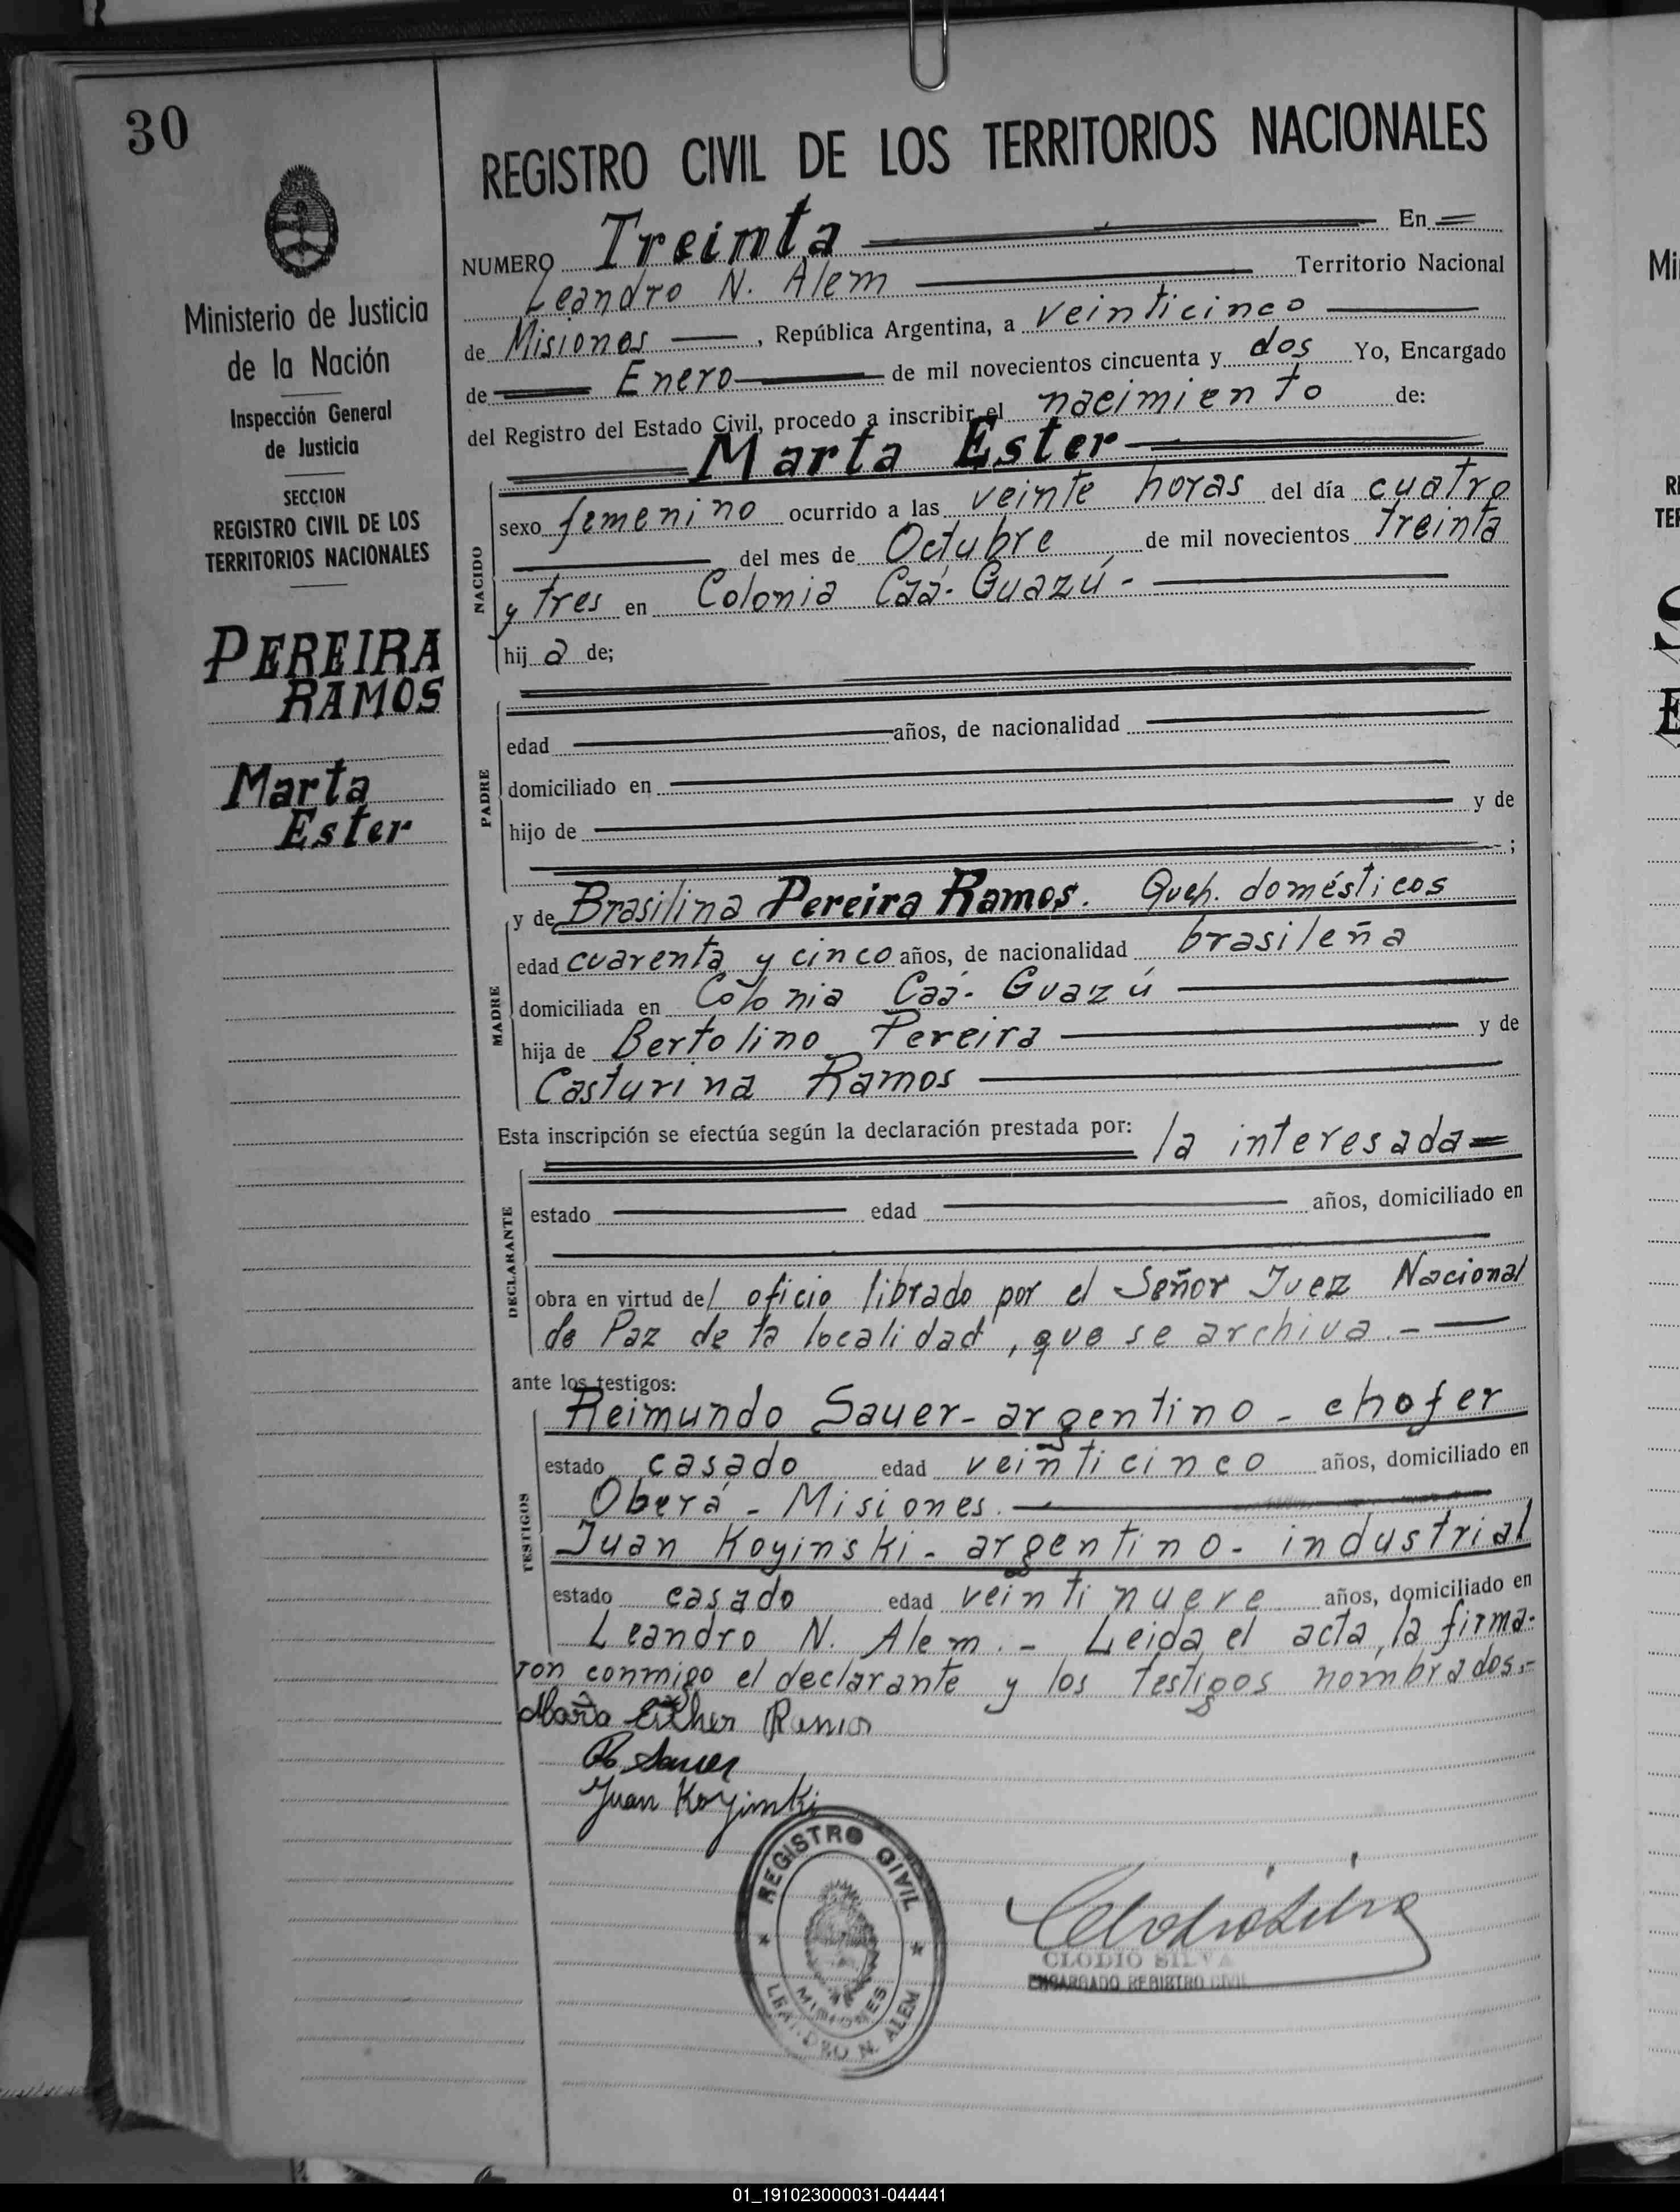 30
Ministerio de Justicia
de la Nación
Inspección General
de Justicia
SECCION
REGISTRO CIVIL DE LOS
TERRITORIOS NACIONALES
PEREIRA
RAMOS
Marta
Ester
REGISTRO CIVIL DE LOS TERRITORIOS NACIONALES
NUMERO Treinta En
Leandro N. Alem Territorio Nacional
de Misiones , República Argentina, a veinticinco
de Enero de mil novecientos cincuenta y dos Yo, Encargado
del Registro del Estado Civil, procedo a inscribir el nacimiento de:
Marta Ester
NACIDO
sexo femenino ocurrido a las veinte horas del día cuatro
del mes de Octubre de mil novecientos treinta
y tres en Colonia Caá-Guazú-
hij a de;
PADRE
edad años, de nacionalidad
domiciliado en
hijo de y de
;
MADRE
y de Brasilina Pereira Ramos. Queh. domésticos
edad cuarenta y cinco años, de nacionalidad brasileña
domiciliada en Colonia Caá-Guazú
hija de Bertolino Pereira y de
Casturina Ramos
Esta inscripción se efectúa según la declaración prestada por: la interesada
DECLARANTE
estado edad años, domiciliado en
obra en virtud del oficio librado por el Señor Juez Nacional
de Paz de la localidad, que se archiva.-
ante los testigos:
TESTIGOS
Reimundo Sauer- argentino - chofer
estado casado edad veinticinco años, domiciliado en
Oberá - Misiones.
Juan Koyinski - argentino - industrial
estado casado edad veintinueve años, domiciliado en
Leandro N. Alem.- Leida el acta, la firma-
ron conmigo el declarante y los testigos nombrados.-
Esther Ramos
R. Sauer
Juan Koyinski
REGISTRO CIVIL
MISIONES
LEANDRO N. ALEM
CLODIO SILVA
ENCARGADO REGISTRO CIVIL
Mi
01_191023000031-044441